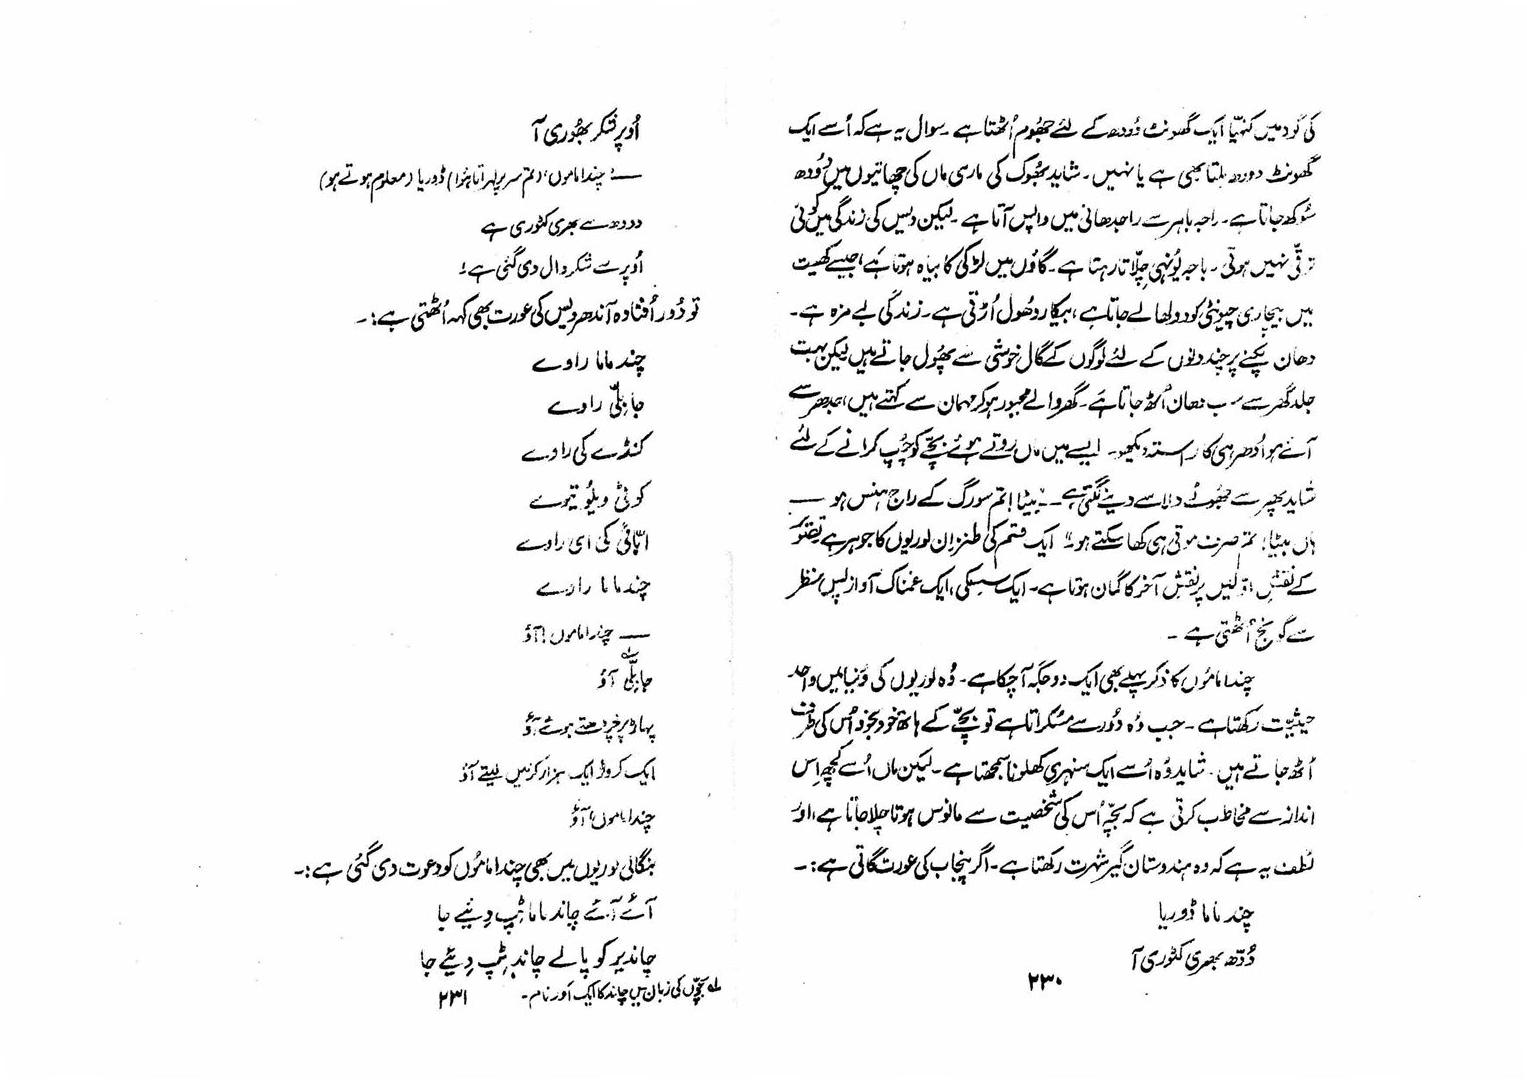 کی گود میں کنہیّا ایک گھونٹ دُودھ کے لئے جھوم اُٹھتا ہے ۔ سوال یہ ہے کہ اُسے ایک
گھونٹ دودھ ملتا بھی ہے یا نہیں ۔ شاید بھُوک کی ماری ماں کی چھاتیوں میں دُودھ
سُوکھ جاتا ہے ۔ راجہ باہر سے راجدھانی میں واپس آتا ہے ۔ لیکن دیس کی زندگی میں کوئی
ترقّی نہیں ہوتی ۔ باجہ یُونہی چِلّاتا رہتا ہے ۔ گاؤں میں لڑکی کا بیاہ ہوتا ہے، جیسے کھیت
میں بیچاری چیونٹی کو دولھا لے جاتا ہے، بیکار دھُول اُڑتی ہے ۔ زندگی بے مزہ ہے ۔
دھان پکنے پر چند دنوں کے لئے لوگوں کے گال خوشی سے پھُول جاتے ہیں لیکن بہت
جلد گھر سے سب دھان اُٹھ جاتا ہے ۔ گھر والے مجبور ہو کر مہمان سے کہتے ہیں، جدھر سے
آئے ہو اُدھر ہی کا راستہ دیکھو ۔ ایسے میں ماں روتے ہوئے بچّے کو چُپ کرانے کے لئے
شاید پھر سے جھُوٹے دلاسے دینے لگتی ہے ۔۔ بیٹا! تم سورگ کے راج ہنس ہو —
ہاں بیٹا! تم صرف موتی ہی کھا سکتے ہو" ایک قسم کی طنز اِن لوریوں کا جوہر ہے
کے نقشِ اوّلیں پر نقشِ آخر کا گمان ہوتا ہے ۔ ایک سِسکی، ایک غمناک آواز پس منظر
سے گونج اُٹھتی ہے ۔
چندا ماموں کا ذکر پہلے بھی ایک دو جگہ آ چکا ہے ۔ وُہ لوریوں کی دُنیا میں واحد
حیثیّت رکھتا ہے ۔ جب وُہ دُور سے مسکراتا ہے تو بچّے کے ہاتھ خود بخود اُس کی طرف
اُٹھ جاتے ہیں ۔ شاید وُہ اُسے ایک سنہری کھلونا سمجھتا ہے ۔ لیکن ماں اُسے کچھ اِس
انداز سے مخاطب کرتی ہے کہ بچّہ اُس کی شخصیت سے مانوس ہوتا چلا جاتا ہے، اور
لُطف یہ ہے کہ وہ ہندوستان گیر شہرت رکھتا ہے ۔ اگر پنجاب کی عورت گاتی ہے :۔
چندا ماما ڈوریا
دُدّھ بھری کٹوری آ
۲۳۰
اُوپر شکر بھُوری آ
—! چندا ماموں، (تم سر پر لہراتا ہُوا) ڈوریا (معلوم ہوتے ہو)
دودھ سے بھری کٹوری ہے
اُوپر سے شکر ڈال دی گئی ہے!
تو دُور اُفتادہ آندھر دیس کی عورت بھی کہہ اُٹھتی ہے :۔
چندا ماما راوے
جابِلّی راوے
کنڈے کی راوے
کوٹی ویلُو تیوے
چندا ماما راوے
— چندا ماموں! آؤ
جابِلّی ؎۱ آؤ
پہاڑ پر چڑھتے ہوئے آؤ
ایک کروڑ ایک ہزار کرنیں لیتے آؤ
چندا ماموں! آؤ
بنگالی لوریوں میں بھی چندا ماموں کو دعوت دی گئی ہے :۔
آئے آئے چاند ماما ٹِپ دِیئے جا
چاندیر کوپالے چاند ٹِپ دِیئے جا
؎۱ بچّوں کی زبان میں چاند کا ایک اور نام ۔
۲۳۱